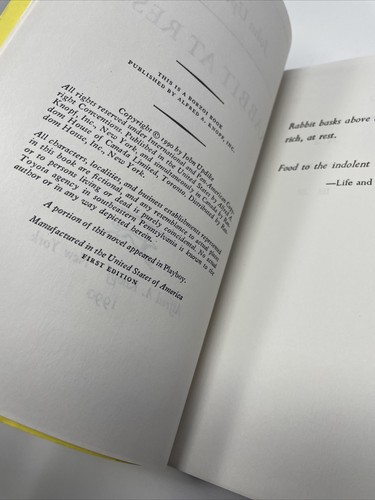 THIS IS A BORZOI BOOK
PUBLISHED BY ALFRED A. KNOPF, INC.
Copyright © 1990 by John Updike
All rights reserved under International and Pan-American Copy-
right Conventions. Published in the United States by Alfred A.
Knopf, Inc., New York, and simultaneously in Canada by Ran-
dom House of Canada Limited, Toronto. Distributed by Ran-
dom House, Inc., New York.
All characters, localities, and business establishments represented
in this book are fictional, and any resemblance to actual places
or to persons living or dead is purely coincidental. No actual
Toyota agency in southeastern Pennsylvania is known to the
author or in any way depicted herein.
A portion of this novel appeared in Playboy.
Manufactured in the United States of America
FIRST EDITION
Rabbit basks above
rich, at rest.
Food to the indolent
—Life and